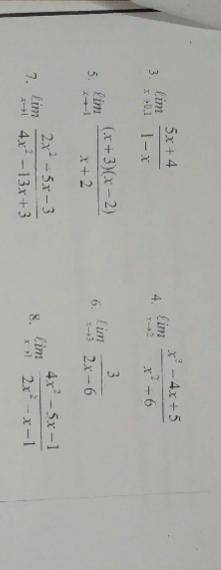 3. lim x→0.1 (5x + 4)/(1 − x)
4. lim (x² − 4x + 5)/(x² + 6)
5. lim x→−1 ((x + 3)(x − 2))/(x + 2)
6. lim x→3 3/(2x − 6)
7. lim x→1 (2x² − 5x − 3)/(4x² − 13x + 3)
8. lim x→1 (4x² − 5x − 1)/(2x² − x − 1)